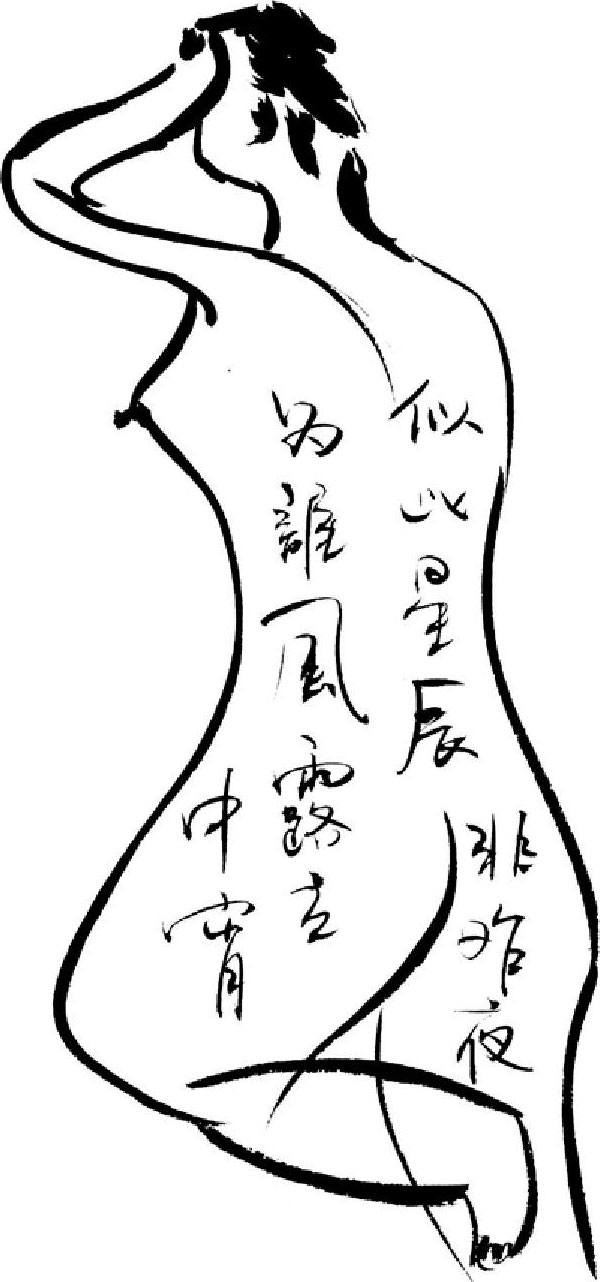 似此星辰
非昨夜
为誰風露立
中宵